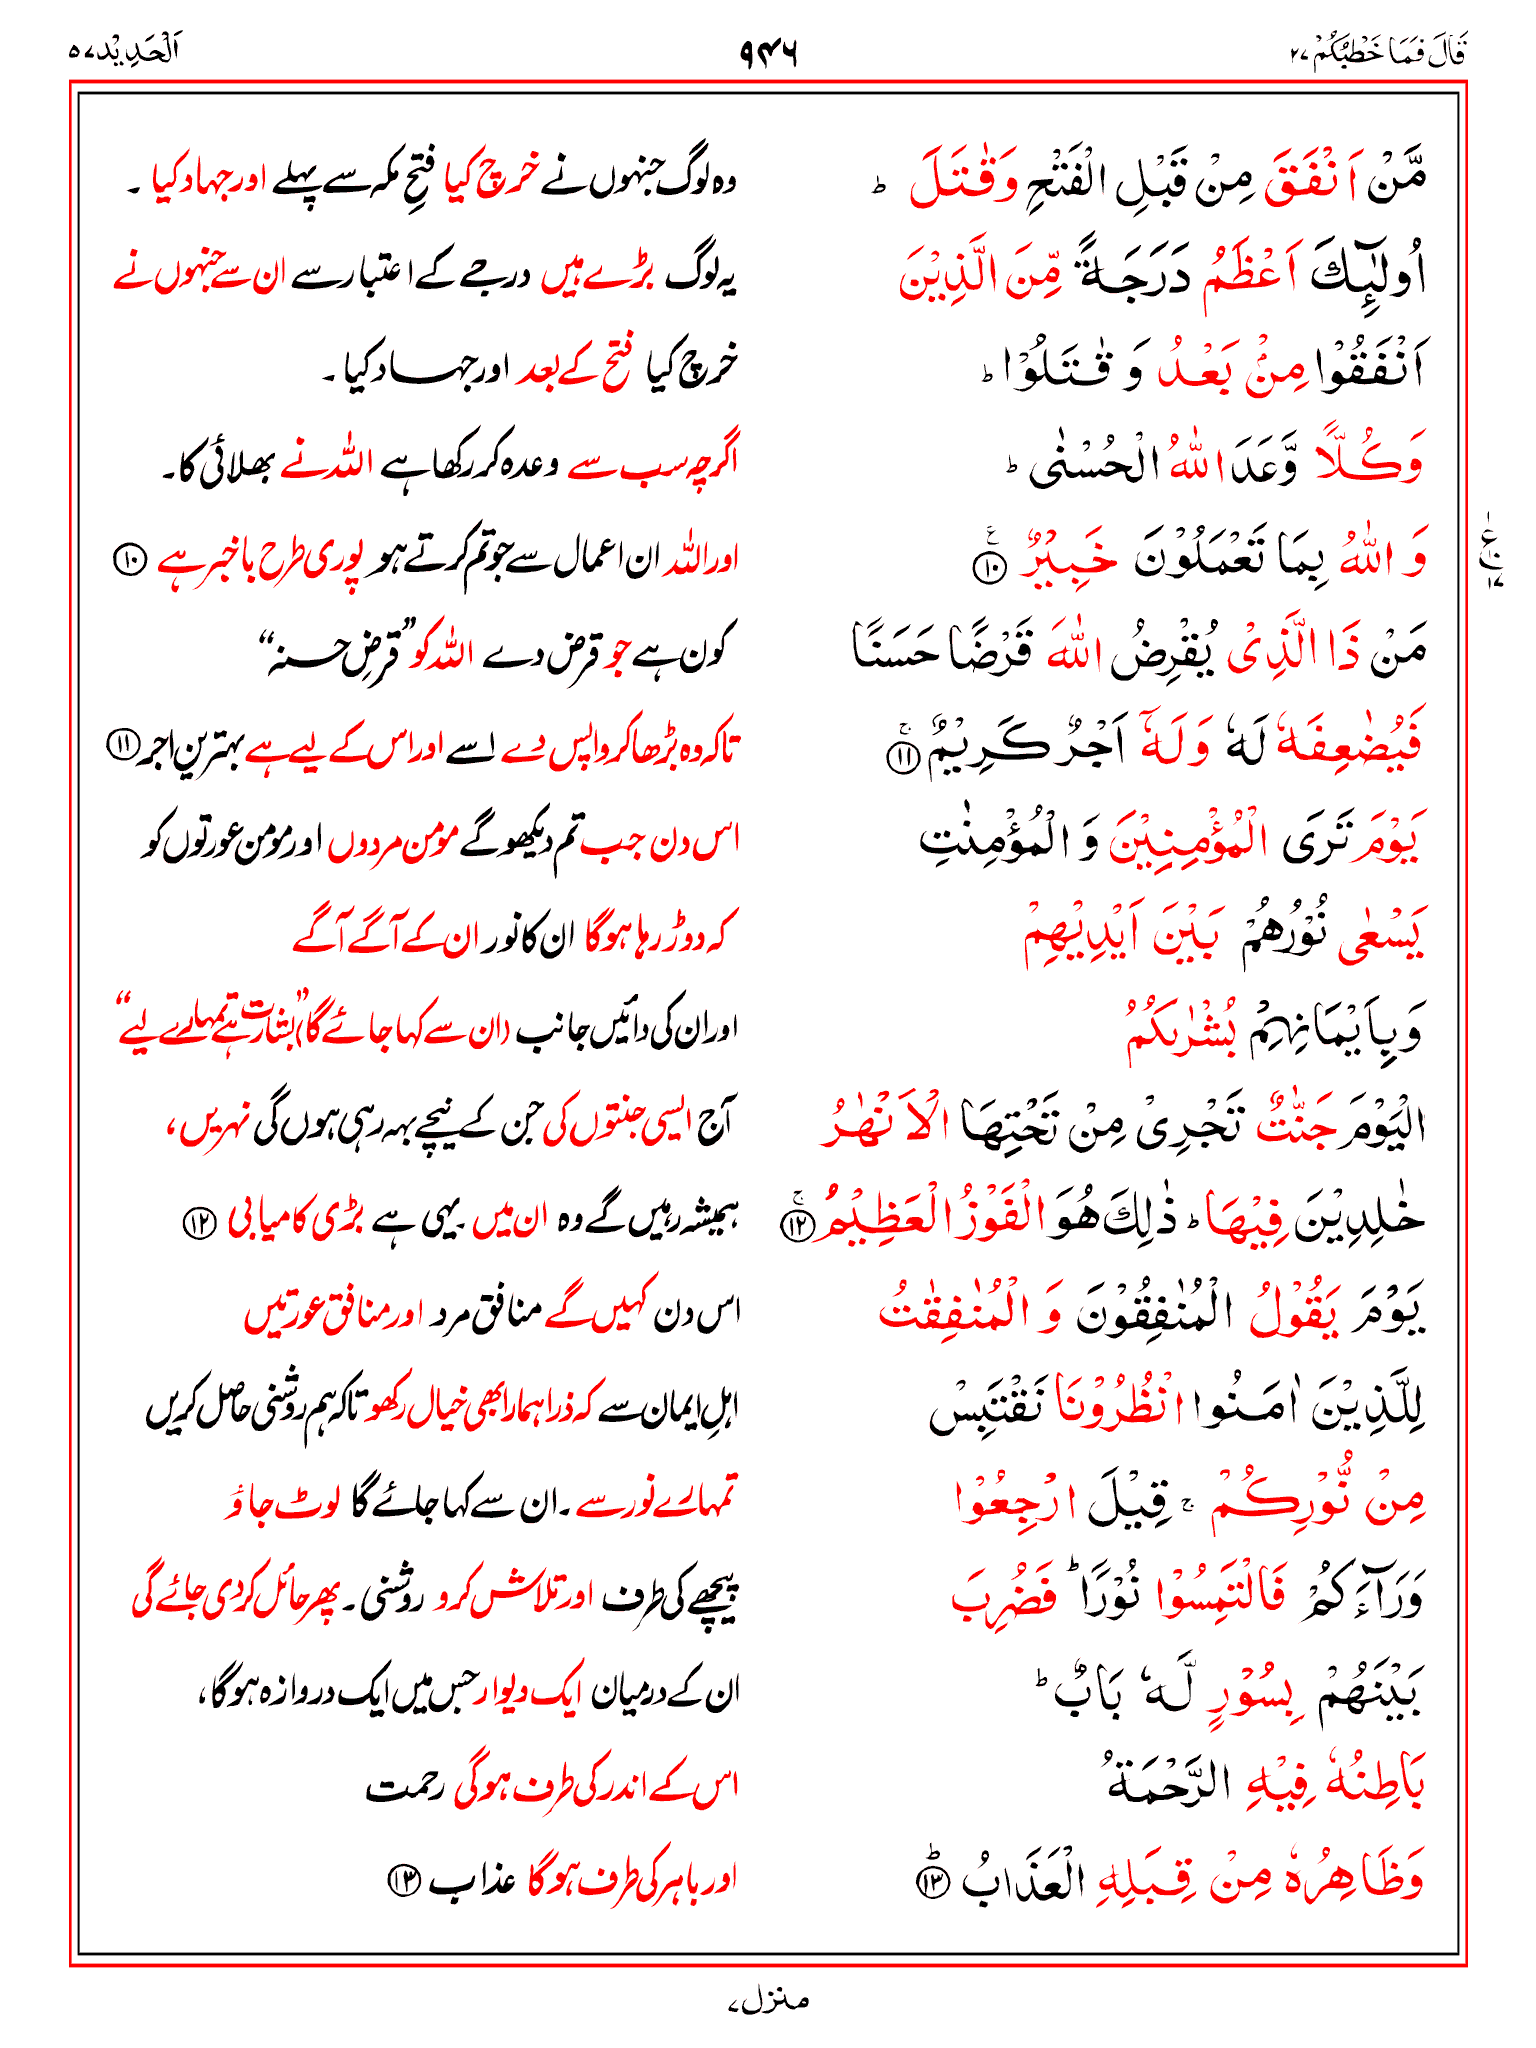 قَالَ فَمَا خَطْبُكُمْ ۲۷
۹۴۶
اَلْحَدِيْد ۵۷
مَّنْ اَنْفَقَ مِنْ قَبْلِ الْفَتْحِ وَقٰتَلَ ؕ
وہ لوگ جنہوں نے خرچ کیا فتحِ مکہ سے پہلے اور جہاد کیا ۔
اُولٰٓئِكَ اَعْظَمُ دَرَجَةً مِّنَ الَّذِيْنَ
یہ لوگ بڑے ہیں درجے کے اعتبار سے ان سے جنہوں نے
اَنْفَقُوْا مِنْۢ بَعْدُ وَ قٰتَلُوْا ؕ
خرچ کیا فتح کے بعد اور جہاد کیا ۔
وَكُلًّا وَّعَدَ اللّٰهُ الْحُسْنٰى ؕ
اگرچہ سب سے وعدہ کر رکھا ہے اللہ نے بھلائی کا۔
وَ اللّٰهُ بِمَا تَعْمَلُوْنَ خَبِيْرٌ ﴿۱۰﴾ ع
اور اللہ ان اعمال سے جو تم کرتے ہو پوری طرح باخبر ہے ﴿۱۰﴾
ع ۱۰ ۱۷
مَنْ ذَا الَّذِىْ يُقْرِضُ اللّٰهَ قَرْضًا حَسَنًا
کون ہے جو قرض دے اللہ کو ”قرضِ حسنہ“
فَيُضٰعِفَهٗ لَهٗ وَلَهٗٓ اَجْرٌ كَرِيْمٌ ﴿۱۱﴾ ۚ
تاکہ وہ بڑھا کر واپس دے اسے اور اس کے لیے ہے بہترین اجر ﴿۱۱﴾
يَوْمَ تَرَى الْمُؤْمِنِيْنَ وَ الْمُؤْمِنٰتِ
اس دن جب تم دیکھو گے مومن مردوں اور مومن عورتوں کو
يَسْعٰى نُوْرُهُمْ بَيْنَ اَيْدِيْهِمْ
کہ دوڑ رہا ہو گا ان کا نور ان کے آگے آگے
وَبِاَيْمَانِهِمْ بُشْرٰىكُمُ
اور ان کی دائیں جانب (ان سے کہا جائے گا) ”بشارت ہے تمہارے لیے“
الْيَوْمَ جَنّٰتٌ تَجْرِىْ مِنْ تَحْتِهَا الْاَنْهٰرُ
آج ایسی جنتوں کی جن کے نیچے بہہ رہی ہوں گی نہریں،
خٰلِدِيْنَ فِيْهَا ؕ ذٰلِكَ هُوَ الْفَوْزُ الْعَظِيْمُ ﴿۱۲﴾ ۚ
ہمیشہ رہیں گے وہ ان میں یہی ہے بڑی کامیابی ﴿۱۲﴾
يَوْمَ يَقُوْلُ الْمُنٰفِقُوْنَ وَ الْمُنٰفِقٰتُ
اس دن کہیں گے منافق مرد اور منافق عورتیں
لِلَّذِيْنَ اٰمَنُوا انْظُرُوْنَا نَقْتَبِسْ
اہلِ ایمان سے کہ ذرا ہمارا بھی خیال رکھو تاکہ ہم روشنی حاصل کریں
مِنْ نُّوْرِكُمْ ۚ قِيْلَ ارْجِعُوْا
تمہارے نور سے ۔ ان سے کہا جائے گا لوٹ جاؤ
وَرَآءَكُمْ فَالْتَمِسُوْا نُوْرًا ؕ فَضُرِبَ
پیچھے کی طرف اور تلاش کرو روشنی ۔ پھر حائل کر دی جائے گی
بَيْنَهُمْ بِسُوْرٍ لَّهٗ بَابٌ ؕ
ان کے درمیان ایک دیوار جس میں ایک دروازہ ہو گا،
بَاطِنُهٗ فِيْهِ الرَّحْمَةُ
اس کے اندر کی طرف ہو گی رحمت
وَظَاهِرُهٗ مِنْ قِبَلِهِ الْعَذَابُ ﴿۱۳﴾ ؕ
اور باہر کی طرف ہو گا عذاب ﴿۱۳﴾
منزل ۷